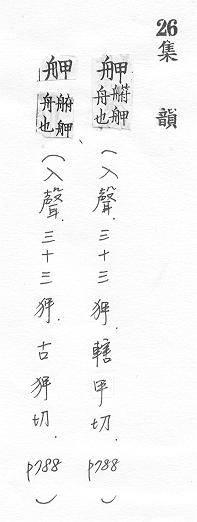 26 集韻
舺 舟符舺也 (入聲.三十三狎.轄甲切.p788)
舺、舟艄舺也 (入聲.三十三狎.古狎切.p788)